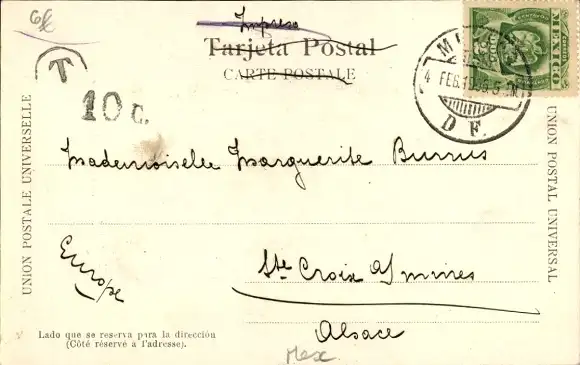 Impreso
Tarjeta Postal
CARTE POSTALE
T
10 c.
MEXICO
4 FEB.
D F.
UNION POSTALE UNIVERSELLE
UNION POSTAL UNIVERSAL
Mademoiselle Marguerite Burrus
Europe
Ste Croix a/ mines
Alsace
Lado que se reserva para la dirección
(Côté réservé a l'adresse).
Mex.